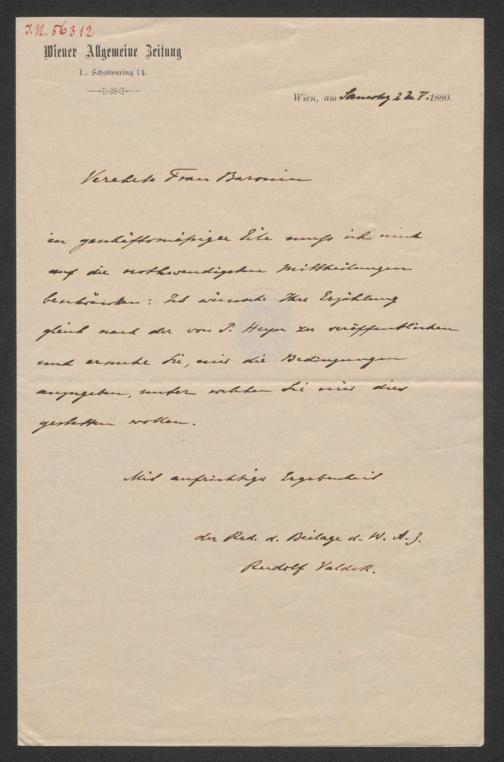 I.N. 56312
Wiener Allgemeine Zeitung
I., Schottenring 14.
Wien, am Samstag 22/V. 1880.
Verehrte Frau Baronin
in geschäftsmäßiger Eile muß ich mich
auf die nothwendigsten Mittheilungen
beschränken: Ich wünsche Ihre Erzählung
gleich nach der von P. Heyse zu veröffentlichen
und ersuche Sie, mir die Bedingungen
anzugeben, unter welchen Sie mir dies
gestatten wollen.
Mit aufrichtiger Ergebenheit
der Red. d. Beilage d. W. A. Z.
Rudolf Valdek.